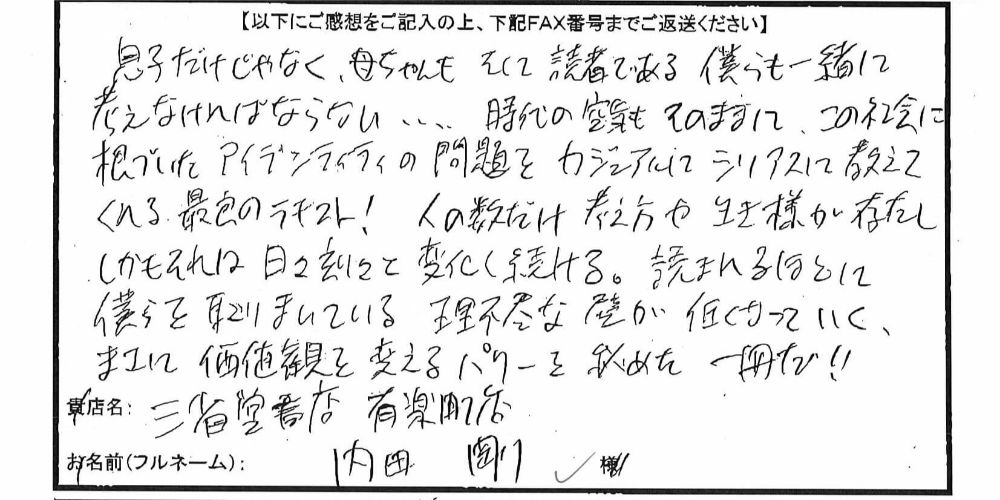 【以下にご感想をご記入の上、下記FAX番号までご返送ください】
息子だけじゃなく、母ちゃんも そして 読者である 僕らも一緒に
考えなければならない、、、、 時代の空気も そのままに、この社会に
根づいた アイデンティティの 問題を カジュアルに シリアスに 教えて
くれる 最良のテキスト! 人の数だけ 考え方や 生き様が 存在し
しかもそれは 日々刻々と 変化し続ける。 読まれるほどに
僕らを 取りまいている 理不尽な 壁が 低くなっていく、
まさに 価値観を 変える パワーを 秘めた 一冊だ!!
貴店名: 三省堂書店 有楽町店
お名前(フルネーム): 内田 剛 様